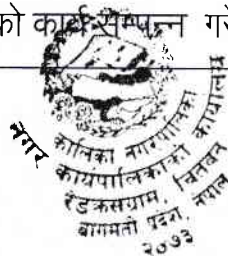 को कार्य सम्पन्न गरे
नगर
कालिका नगरपालिका
कार्यपालिकाको कार्यालय
रैडक्रसग्राम, चितवन
बागमती प्रदेश, नेपाल
२०७३